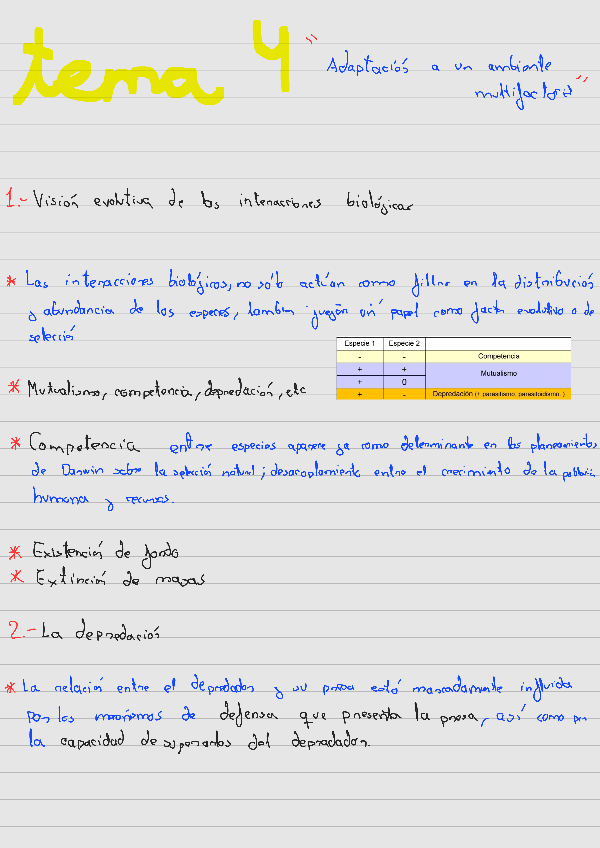 tema 4
"Adaptación a un ambiente
multifactorial"
1.- Visión evolutiva de las interacciones biológicas
* Las interacciones biológicas, no sólo actúan como filtro en la distribución
y abundancia de las especies, también juegan un papel como factor evolutivo o de
selección
Especie 1 Especie 2
- - Competencia
+ + Mutualismo
+ 0
+ - Depredación (+ parasitismo, parasitoidismo..)
* Mutualismo, competencia, depredación, etc
* Competencia entre especies aparece ya como determinante en los planeamientos
de Darwin sobre la selección natural; desacoplamiento entre el crecimiento de la población
humana y recursos.
* Existención de fondo
* Extinción de masas
2.- La depredación
* La relación entre el depredador y su presa está marcadamente influida
por los mecanismos de defensa que presenta la presa, así como por
la capacidad de superarlos del depredador.